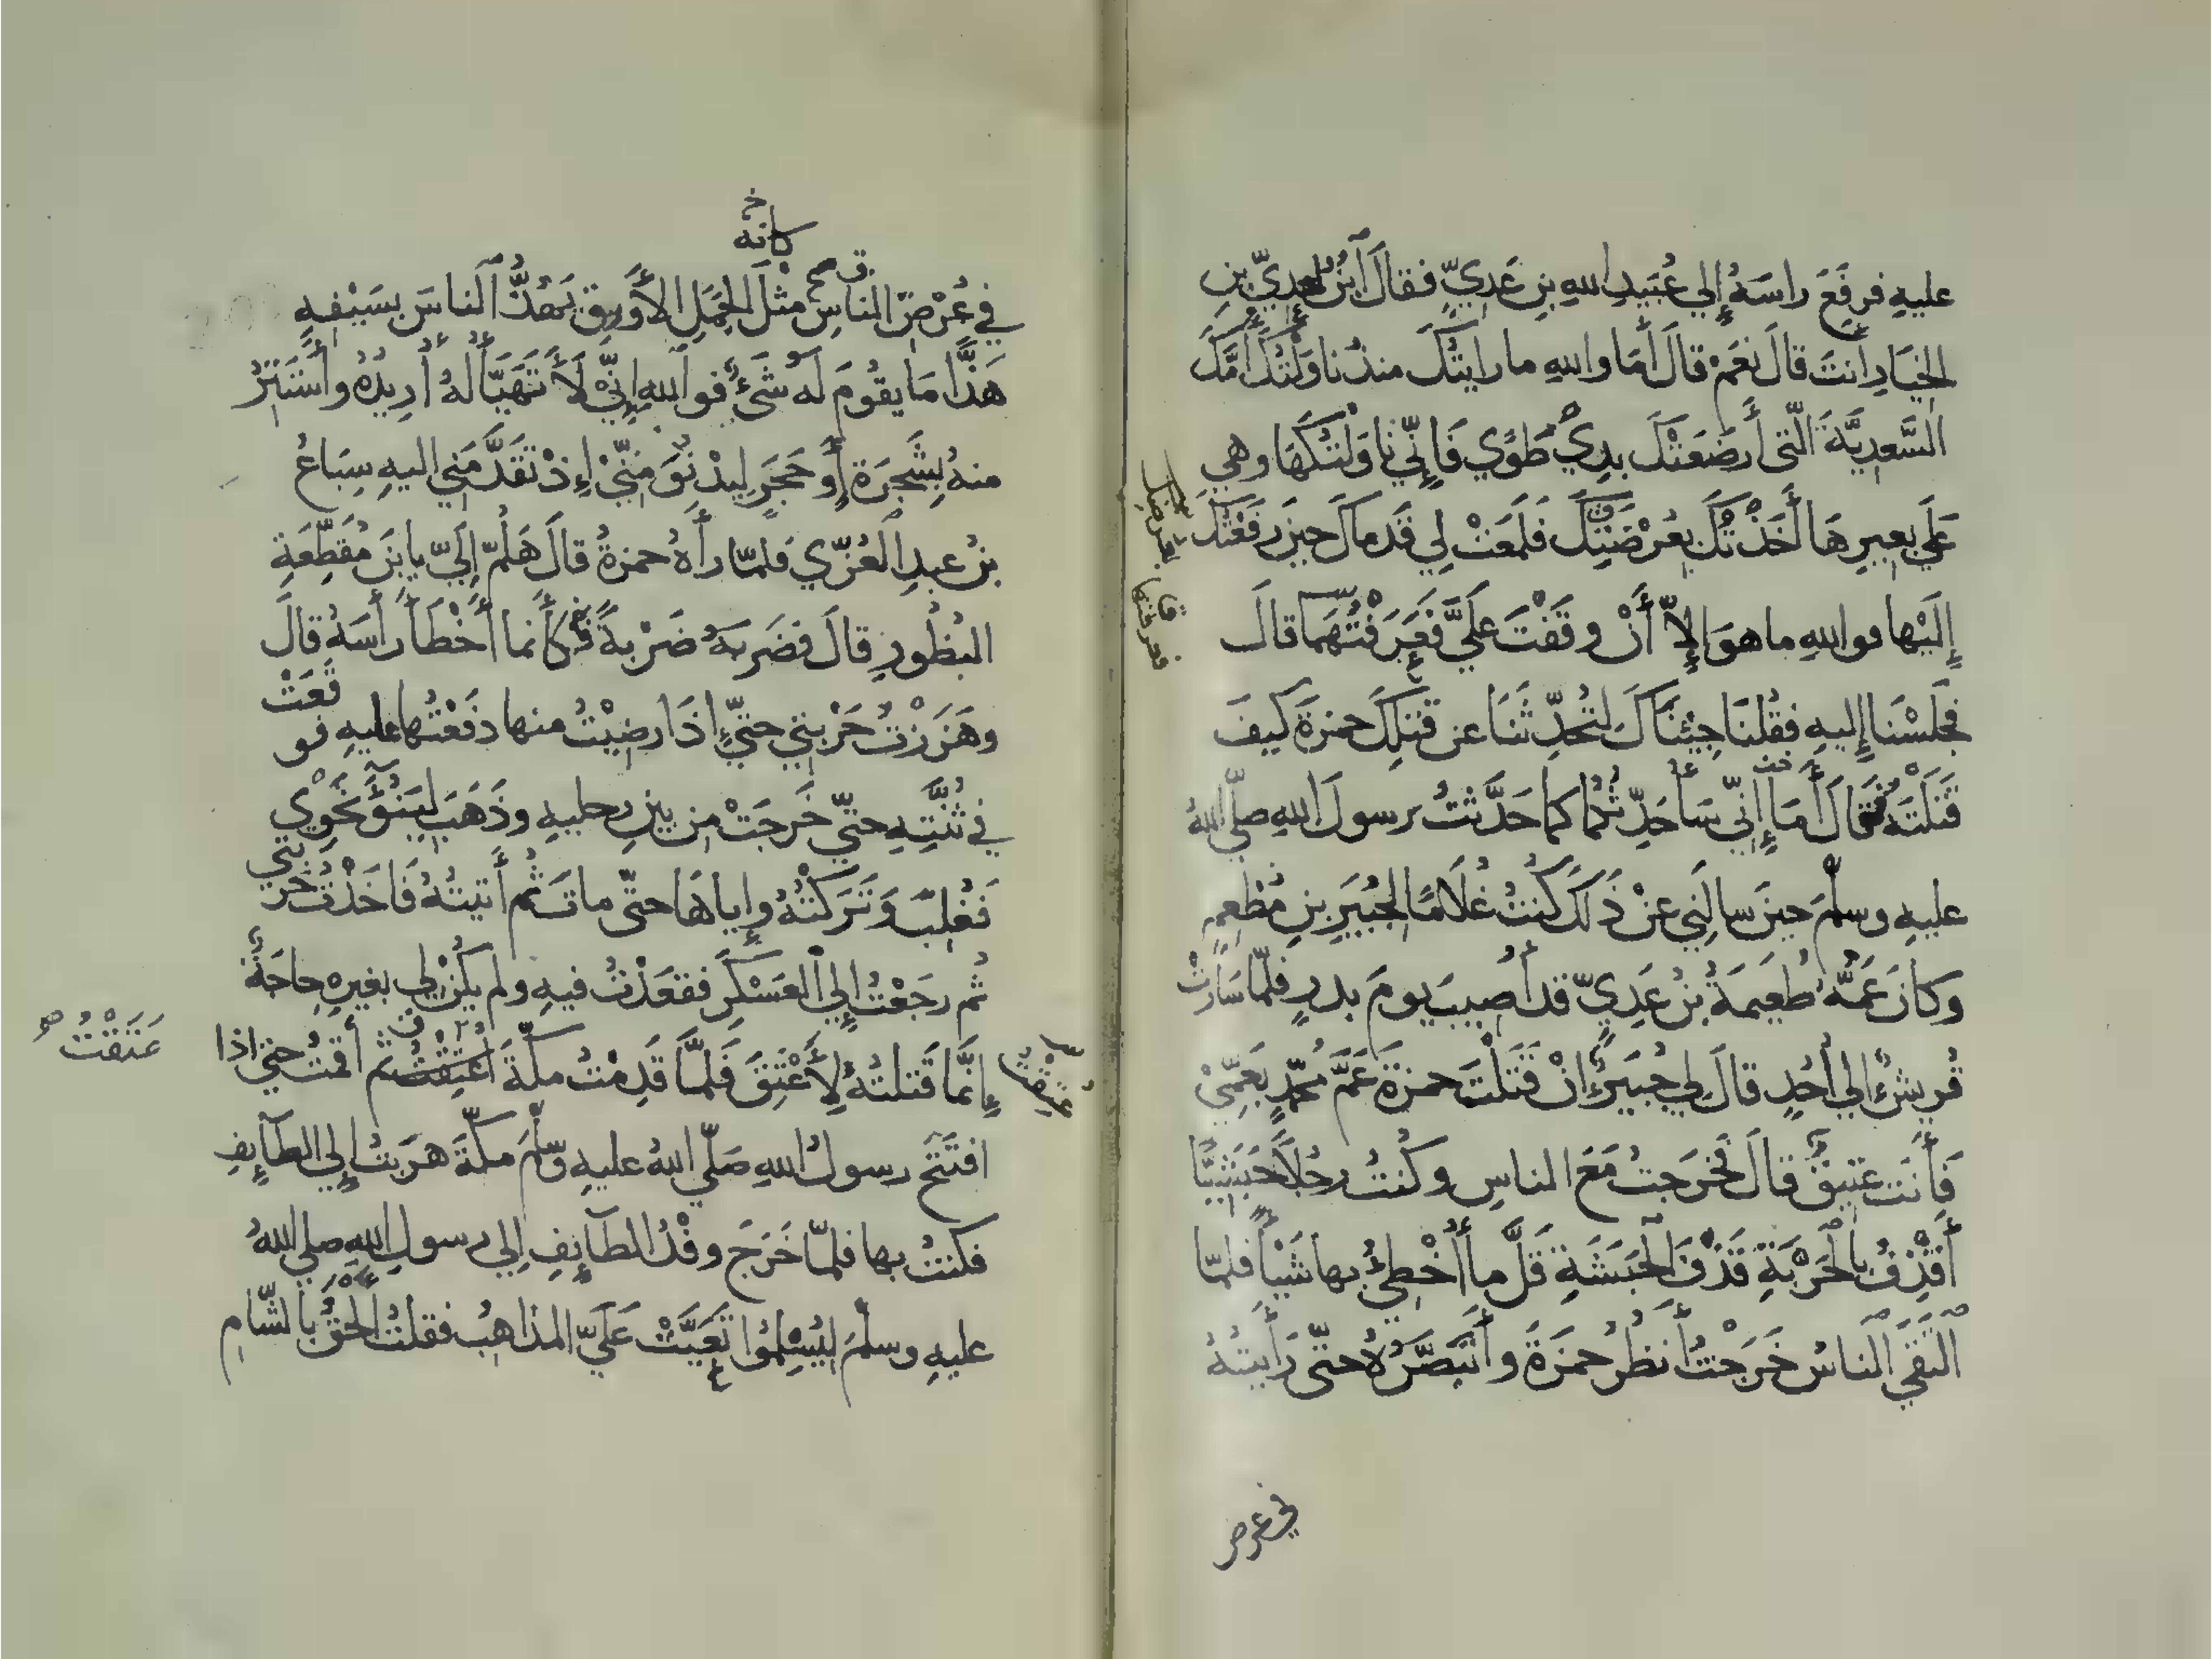 عليهِ فرفَعَ راسَهُ إِلي عُبَيدِ اللهِ بنِ عَديٍّ فقالَ اَبنُ لعديِّ بنِ
الخيَارِ أَنتَ قالَ نعَمْ قالَ أَمَا واللهِ ما رايتُكَ منذُ ناوَلْتُكَ أُمَّكَ
السَّعديَّةَ الّتي أَرضَعَتْكَ بذِي طَوًي فَإِنّي ناوَلْتُكَهَا وهي
عَلي بعيرِهَا أَخَذْتُكَ بعُرْضَتِكَ فَلَمَعَتْ لي قَدمَاكَ حينَ رفَعْتُكَ
إِلَيْها فواللهِ ما هوَ إِلاّ أَنْ وقَفْتَ عَلَيَّ فَعَرَفْتُهمَا قالَ
فجلَسْنَا إِليهِ فقُلنَا جِيْنَاكَ لتُحَدِّثَنَا عن قَتلِكَ حمزَةَ كيفَ
قَتَلتَهُ فَقَالَ أَمَا إِنّي سَأُحَدِّثُكُما كما حَدَّثتُ رسولَ اللهِ صلّي اللهُ
عليهِ وسلّمَ حينَ سالَنِي عنْ ذَلكَ كُنتُ غُلَامًا لجُبَيرِ بنِ مُطْعِمٍ
وكانَ عَمُّهُ طُعَيمَةُ بنُ عَدِيٍّ قد أُصيبَ يومَ بدرٍ فلمّا سَارَتْ
قُريشٌ إِلي أُحدٍ قالَ لي جُبَيرٌ إِنْ قَتَلْتَ حمزَةَ عَمَّ مُحمّدٍ بعَمِّيْ
فَأَنتَ عَتيقٌ قالَ فخرَجتُ مَعَ الناسِ وكُنتُ رجُلاً حَبَشيًّا
أَقذِفُ بالحَرْبَةِ قَذْفَ الحَبَشَةِ قَلَّ ما أُخْطِئُ بها شَيْأً فلمّا
التَقَي الناسُ خَرَجْتُ أَنظُرُ حمزَةَ وأَتَبَصَّرُهُ حتّي رَأَيتُهُ
في عرض
كانه خ
في عُرْضِ الناسِ مثْلَ الجَمَلِ الأَورقِ يَهُذُّ الناسَ بسَيْفِهِ
هَذًّا مَا يقُومَ لَهُ شَيْءٌ فواللهِ إِنّي لَأَتَهَيَّأُ لهُ أُريدُهُ وأَستَتِرُ
منهُ بِشَجَرَةٍ أَو حَجَرٍ ليدْنُوَ مِنّيْ إِذْ تقَدَّمَنِي اليهِ سِبَاعُ
بنُ عبدِ العُزّي فلمّا رأَهُ حمزةُ قالَ هَلُمّ إِلَيّ يا بنَ مُقَطِّعَةِ
البُظُورِ قالَ فضَربَهُ ضَرْبةً فكأَنما أَخْطَأَ رأسَهُ قالَ
وهَزَزْتُ حَرْبتي حتيّ اذَا رضِيْتُ منها دفَعْتُها عليهِ فوقَعَتْ
في ثُنَّتِهِ حتّي خَرجَتْ من بينِ رجليهِ وذَهَبَ ليَنُوْءَ نحْوِي
فَغُلِبَ وَتَرَكْتُهُ وإِياهَا حتّي ماتَ ثُم أَتيتُهُ فَاخَذْتُ حَرْبتي
ثُم رجَعْتُ إِلي العَسْكَرِ فقعَدْتُ فيهِ ولم يكُنْ لي بغيرِهِ حاجَةٌ
إِنَّمَا قَتلتُهُ لِأَعْتِقَ فَلمَّا قَدِمْتُ مكّةَ أُعْتِقْتُ ثُم أَقمتُ حتيّ اذا
عَتَقْتُ صح
افتَتَحَ رسولُ اللهِ صَلّي اللهُ عليهِ وسلّمَ مكّةَ هرَبتُ إِلي الطآئِفِ
فكنتُ بها فلمّا خَرَج وفْدُ الطآئِفِ إِلي رسولِ اللهِ صلي اللهُ
عليهِ وسلّمَ ليُسْلِمُوا تَعَيَّتْ عَلَيّ المذَاهبُ فقلتُ أَلْحَقُ بالشّامِ